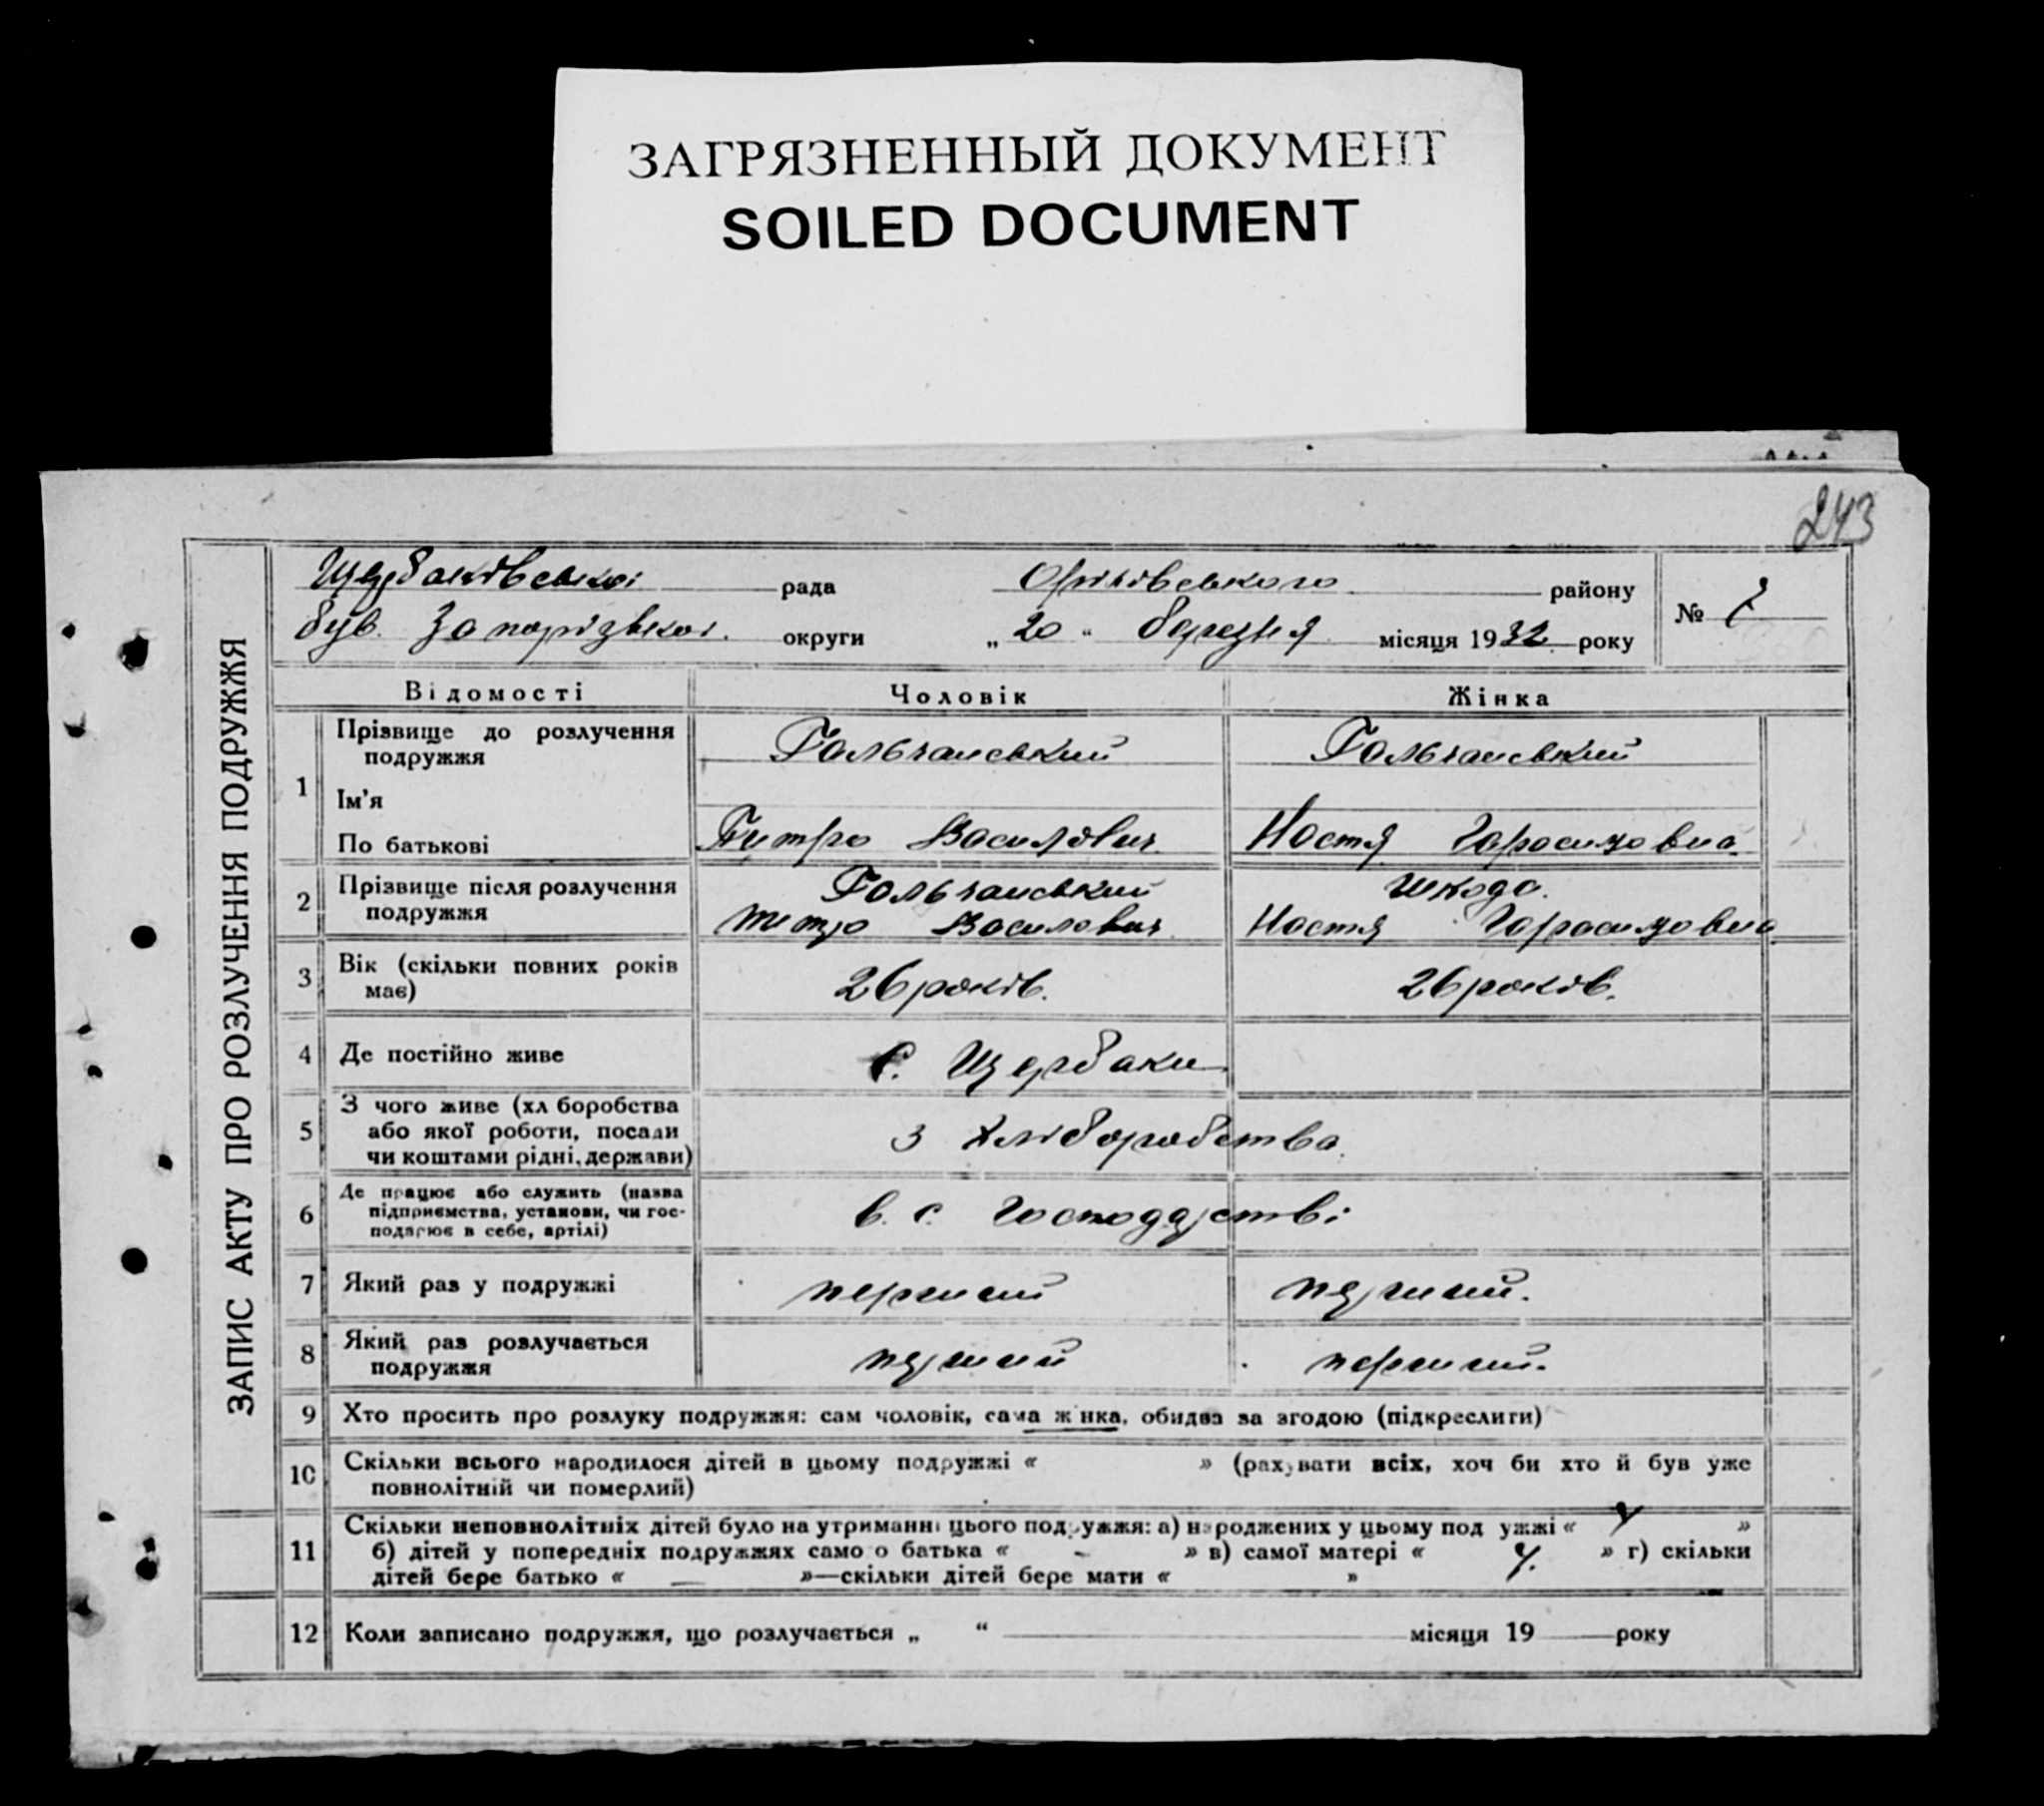 ЗАГРЯЗНЕННЫЙ ДОКУМЕНТ
SOILED DOCUMENT
243
ЗАПИС АКТУ ПРО РОЗЛУЧЕННЯ ПОДРУЖЖЯ
Щербаківської рада Оріхівського району
був. Запорізької округи „ 20 “ березня місяця 1932 року
№
Відомості Чоловік Жінка
1 Прізвище до розлучення подружжя Гальчанський Гальчанський
Ім'я
По батькові Петро Василович Настя Гарасимовна
2 Прізвище після розлучення подружжя Гальчанський Шкода.
Петро Василович Настя Гарасимовна
3 Вік (скільки повних років має) 26 років. 26 років.
4 Де постійно живе с. Щербаки
5 З чого живе (хл боробства
або якої роботи, посади
чи коштами рідні, держави) З Хліборобства.
6 Де працює або служить (назва
підприємства, установи, чи гос-
подарює в себе, артілі) в. с. Господарстві
7 Який раз у подружжі перший перший.
8 Який раз розлучається
подружжя перший перший.
9 Хто просить про розлуку подружжя: сам чоловік, сама жінка, обидва за згодою (підкреслити)
10 Скільки всього народилося дітей в цьому подружжі « » (рахувати всіх, хоч би хто й був уже
повнолітній чи померлий)
11 Скільки неповнолітніх дітей було на утриманні цього подружжя: а) народжених у цьому под ужжі « »
б) дітей у попередніх подружжях само о батька « - » в) самої матері « » г) скільки
дітей бере батько « — »—скільки дітей бере мати « »
12 Коли записано подружжя, що розлучається „ “ місяця 19 року